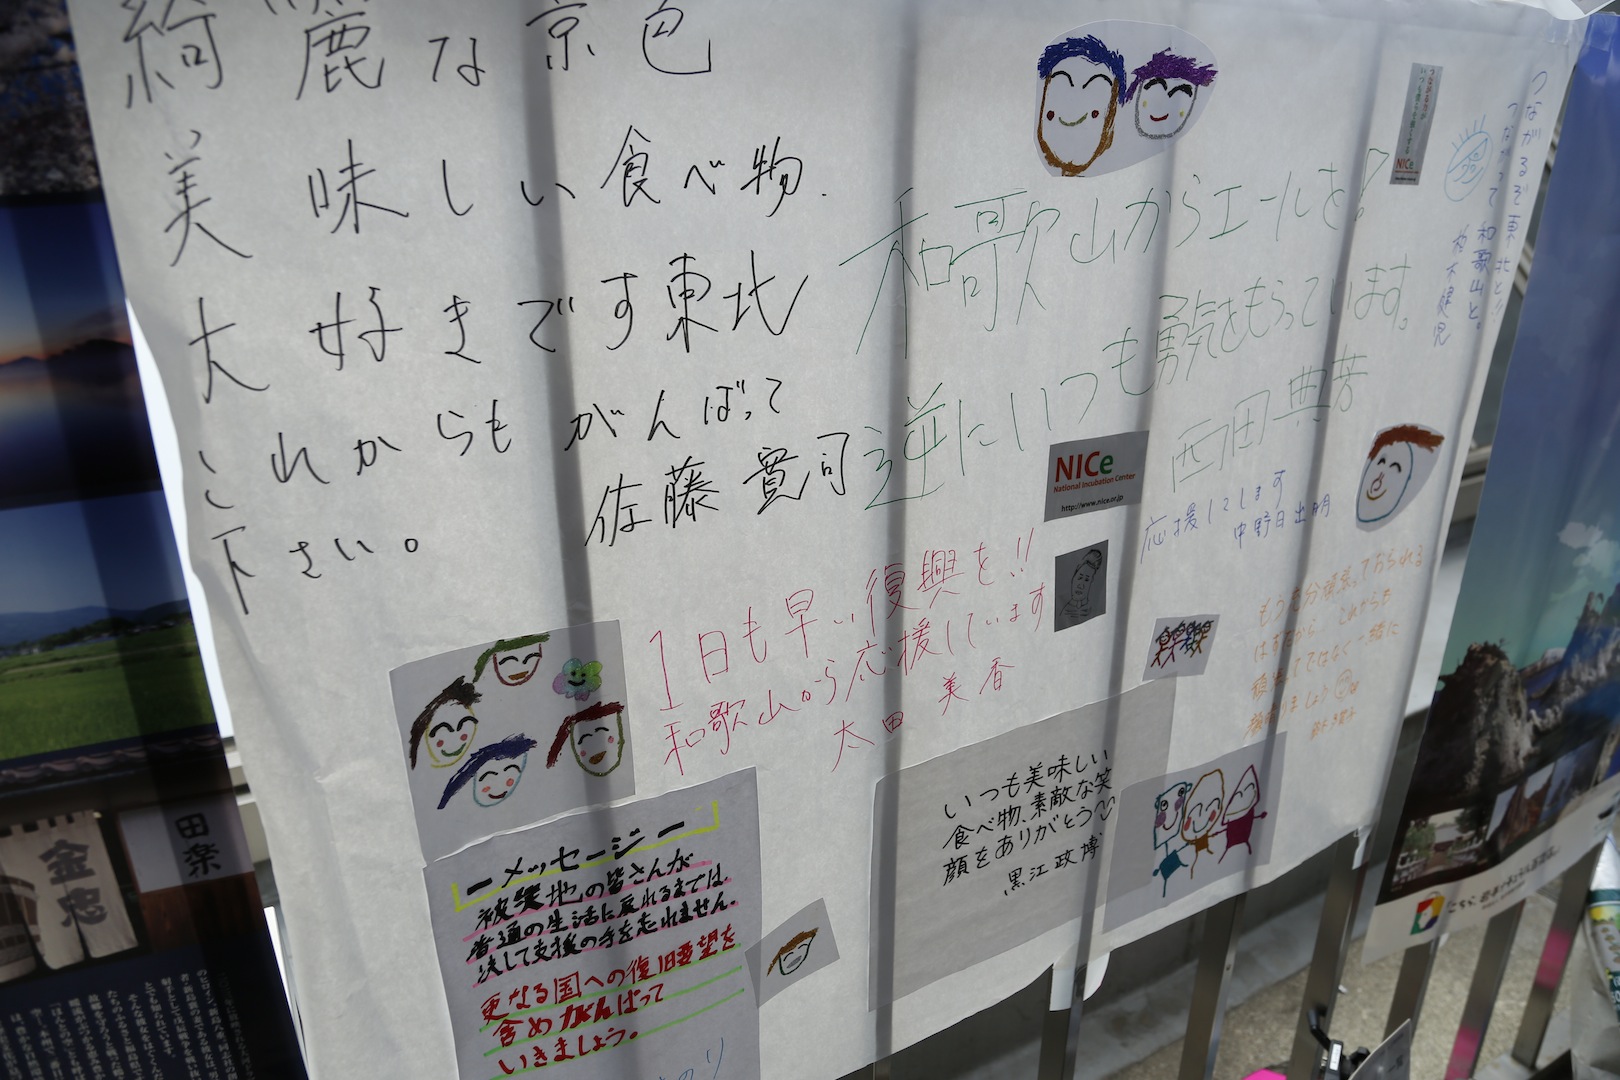 綺麗な景色
美味しい食べ物
大好きです東北
これからもがんばって
下さい。
佐藤寛司
和歌山からエールを!
逆にいつも勇気をもらっています。
西田典
つながるぞ東北と!!
つながって和歌山と。
柏木健児
つながる力が
NICe
NICe
National Incubation Center
http://www.nice.or.jp
応援してします
中野日出明
1日も早い復興を!!
和歌山から応援しています
太田美香
もう充分頑張っておられる
はずだから これからも
一緒に
頑張りましょう
いつも美味しい
食べ物、素敵な笑
顔をありがとう
黒江政博
ーメッセージー
被災地の皆さんが
普通の生活に戻れるまでは、
決して支援の手を忘れません。
更なる国への復旧要望を
含めがんばって
いきましょう。
のり
金忠
田楽